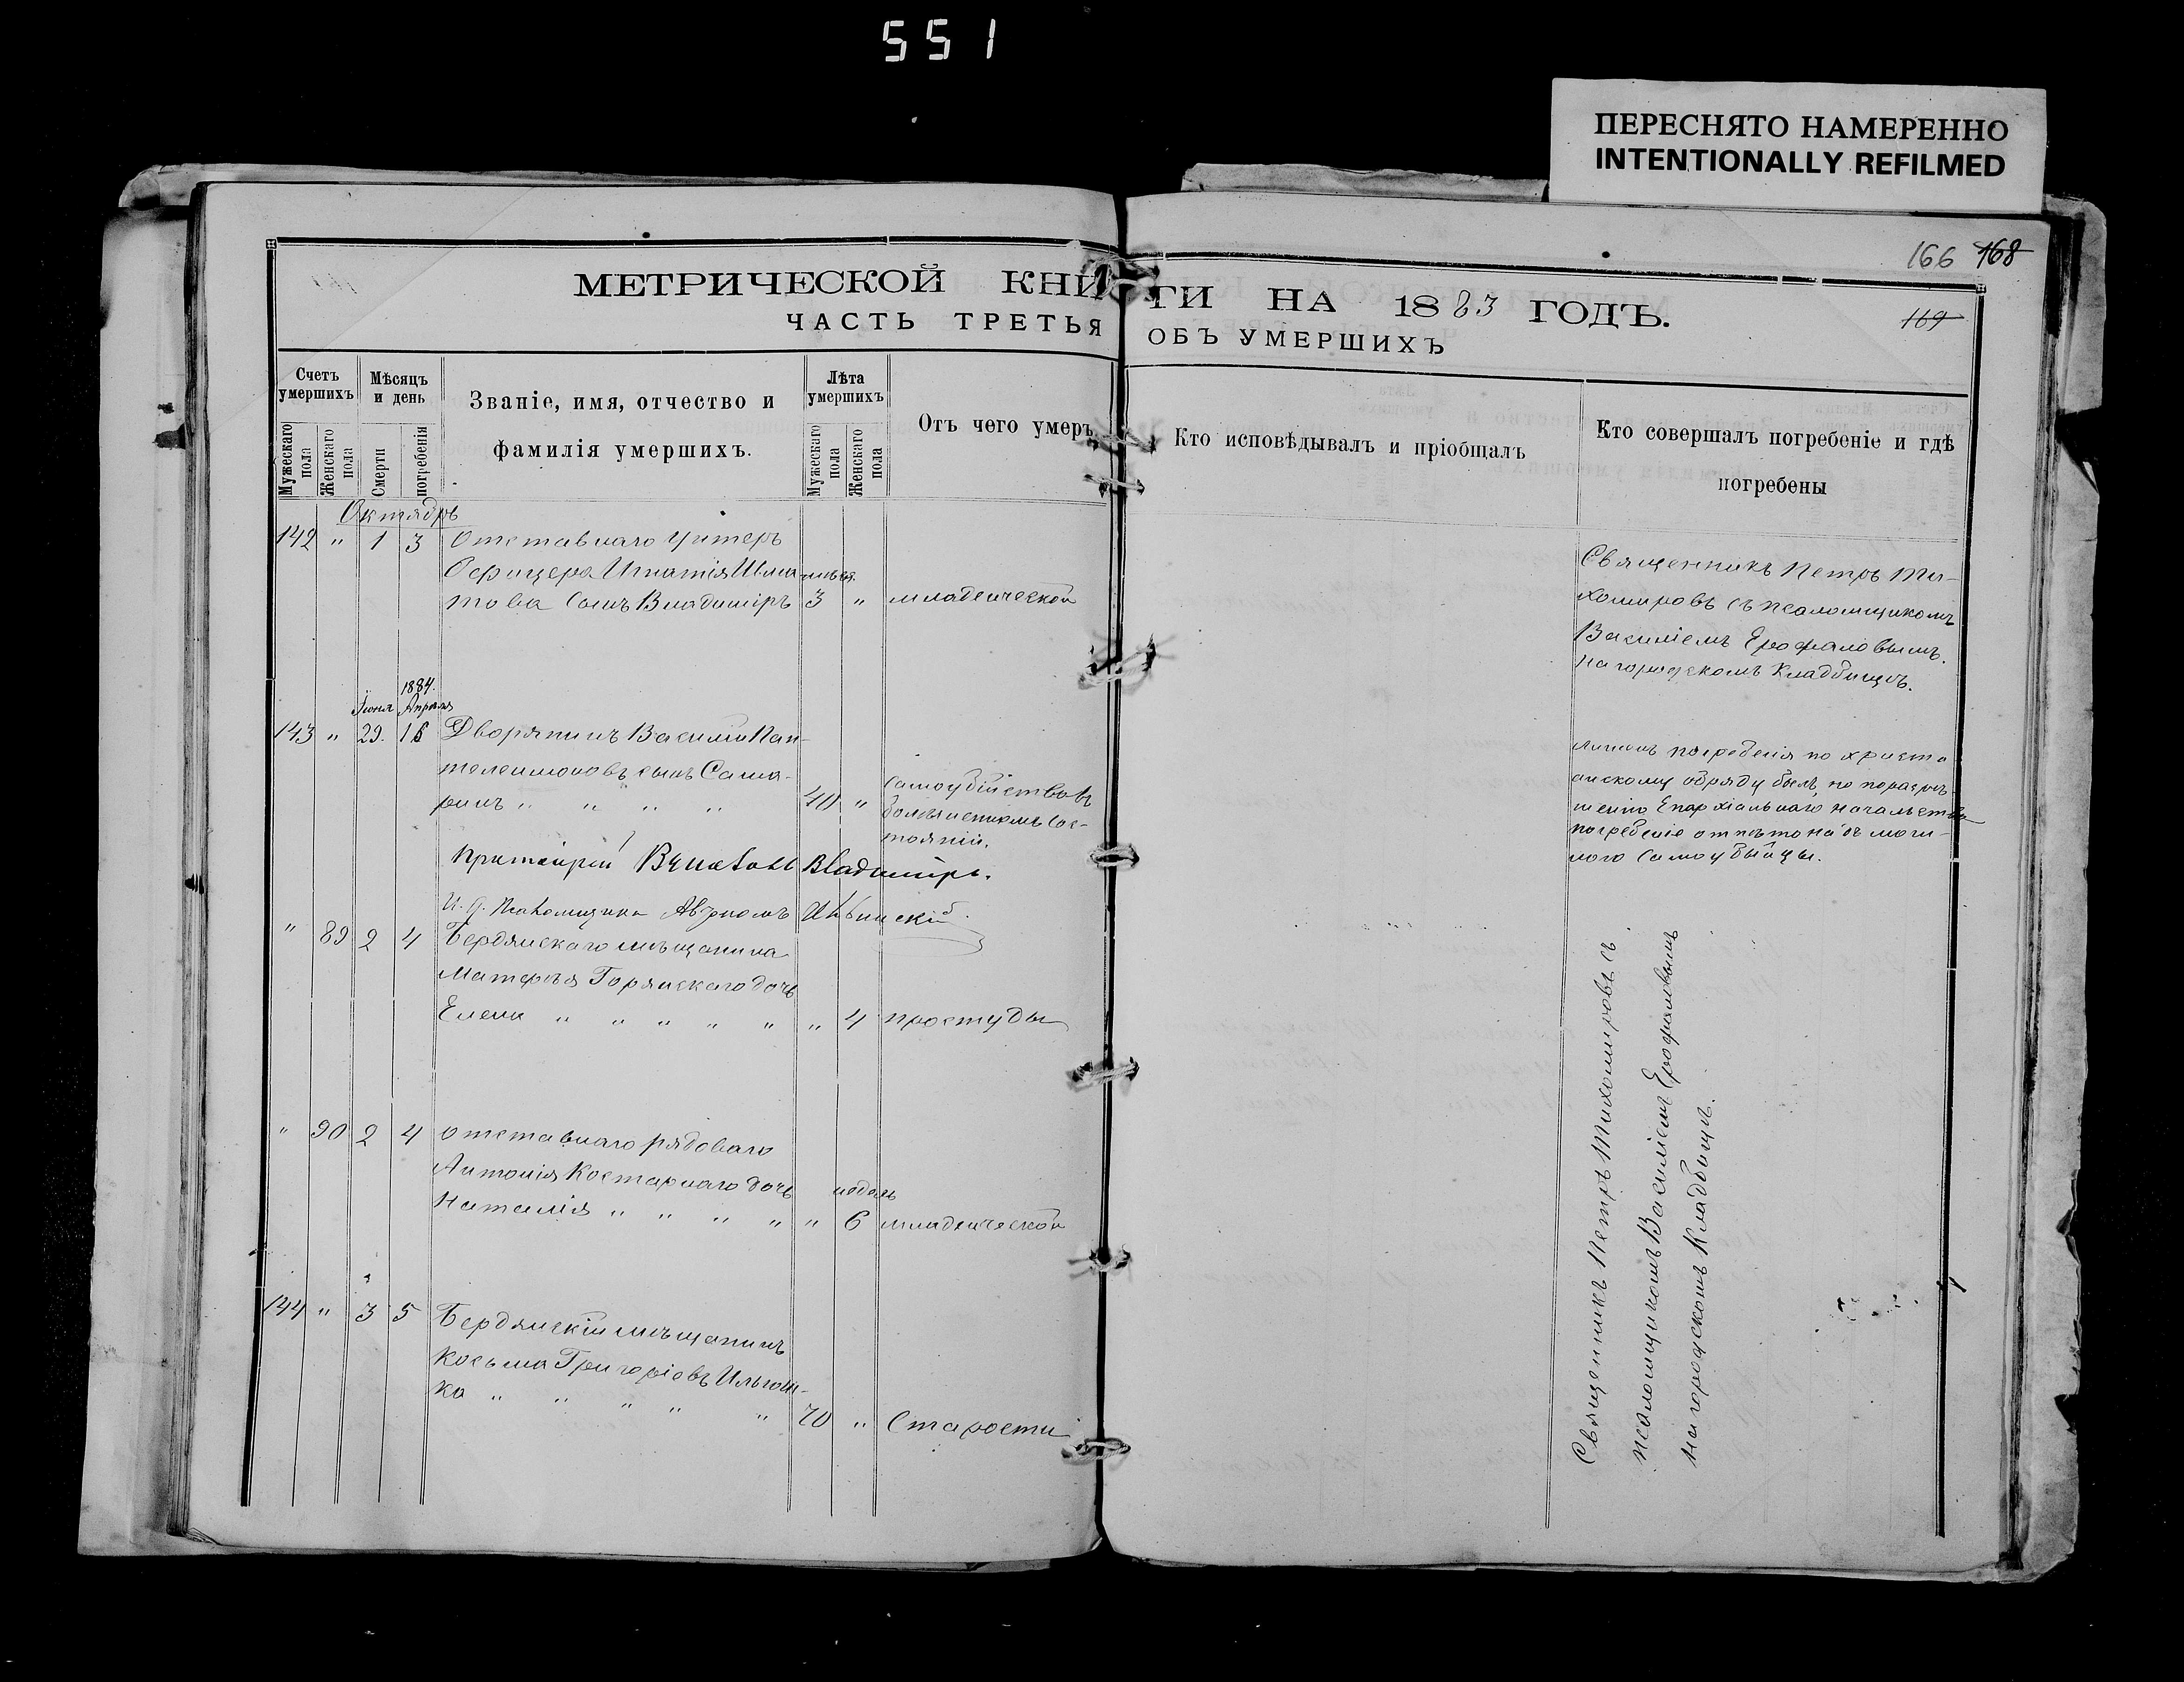 551
ПЕРЕСНЯТО НАМЕРЕННО
INTENTIONALLY REFILMED
166 168
169
МЕТРИЧЕСКОЙ КНИГИ НА 1883 ГОДЪ.
ЧАСТЬ ТРЕТЬЯ ОБЪ УМЕРШИХЪ
Счетъ умершихъ
Мужескаго пола
Женскаго пола
Мѣсяцъ и день
Смерти
погребенія
Званіе, имя, отчество и
фамилія умершихъ.
Лѣта умершихъ
Мужескаго пола
Женскаго пола
Отъ чего умеръ
Кто исповѣдывалъ и пріобщалъ
Кто совершалъ погребеніе и гдѣ
погребены
Октябрь
142 " 1 3 Отставнаго Унтеръ
Офицера Игнатія
това сынъ Владиміръ 3 " младенческой
Священникъ Петръ Ти-
хомировъ съ псаломщикомъ
Василіемъ Ерофаловымъ.
на городскомъ Кладбищѣ.
1884.
Іюня Апрѣля
143 " 29. 16 Дворянинъ Василій Пан-
телеимоновъ сынъ Сама-
ринъ " " " " 40 " самоубійство въ
болѣзненномъ сос-
тояніи.
погребенія по христі
анскому обряду былъ, но по разрѣ-
шенію Епархіальнаго начальства
погребеніе отпѣто на
самоубійцы.
Владиміръ.
И. д. Псаломщика
" 89 2 4 Бердянскаго мѣщанина
Матфѣя Горянскаго дочь
Елена " " " " " " 4 простуды
" 90 2 4 отставнаго рядоваго
Антонія Костарнаго дочь недѣль
Наталія " " " " " 6 младенческой
144 " 3 5 Бердянскій мѣщанинъ
Косьма Григоріевъ Ильюш-
ко " " " " " 70 " Старости
Священникъ Петръ Тихомировъ съ
псаломщикомъ Василіемъ Ерофаловымъ
на городскомъ Кладбищѣ.